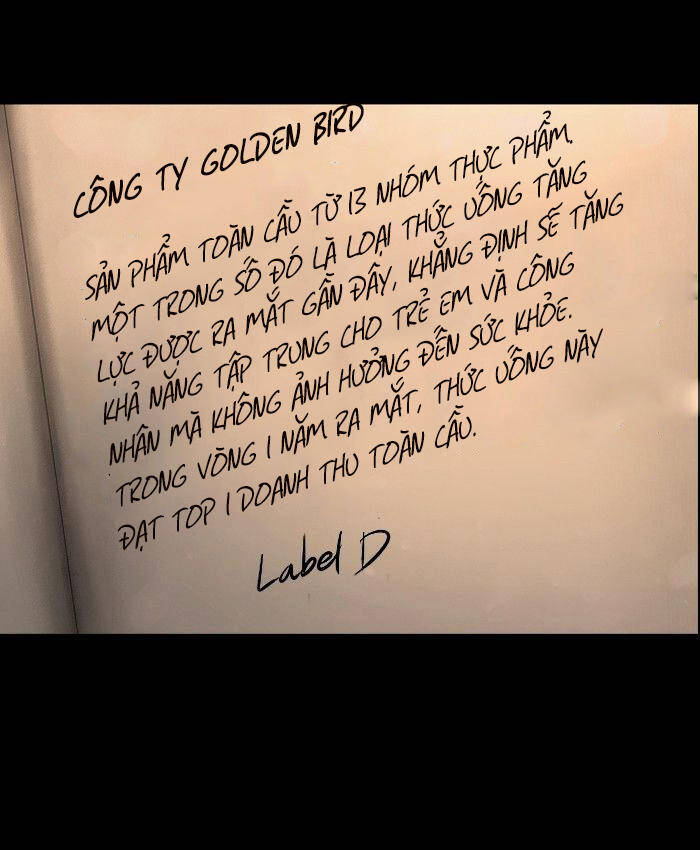 CÔNG TY GOLDEN BIRD
SẢN PHẨM TOÀN CẦU TỪ 13 NHÓM THỰC PHẨM.
MỘT TRONG SỐ ĐÓ LÀ LOẠI THỨC UỐNG TĂNG
LỰC ĐƯỢC RA MẮT GẦN ĐÂY, KHẲNG ĐỊNH SẼ TĂNG
KHẢ NĂNG TẬP TRUNG CHO TRẺ EM VÀ CÔNG
NHÂN MÀ KHÔNG ẢNH HƯỞNG ĐẾN SỨC KHỎE.
TRONG VÒNG 1 NĂM RA MẮT, THỨC UỐNG NÀY
ĐẠT TOP 1 DOANH THU TOÀN CẦU.
Label D